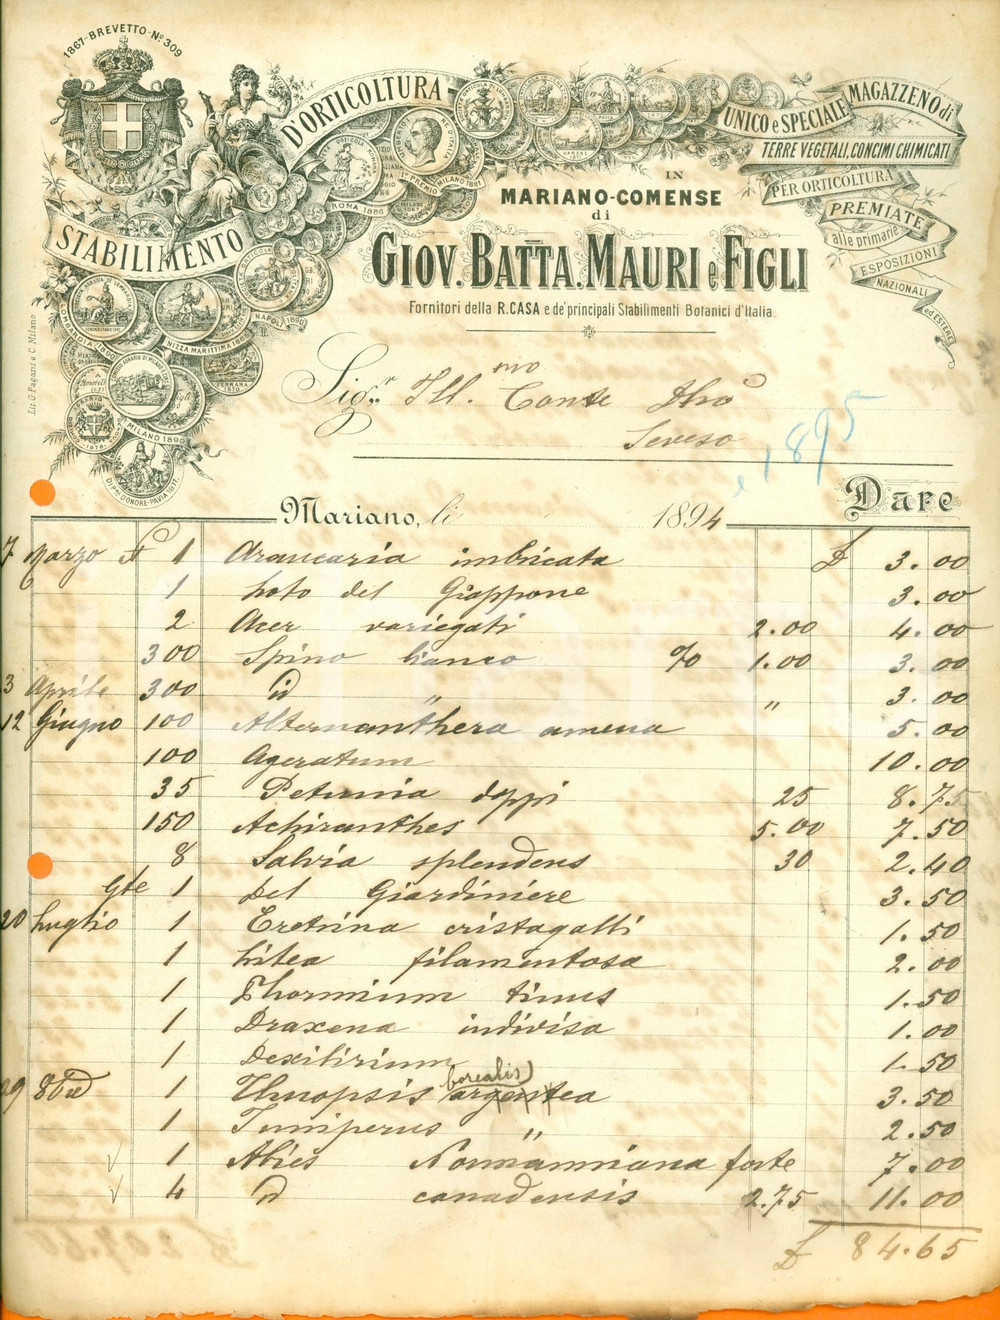 1867-BREVETTO-No 309
STABILIMENTO
D'ORTICOLTURA
UNICO e SPECIALE
MAGAZZENO di
TERRE VEGETALI, CONCIMI CHIMICATI
PER ORTICOLTURA
PREMIATE
alle primarie
ESPOSIZIONI
NAZIONALI
ed ESTERE
ROMA 1886
1° PREMIO MILANO 1881
NAPOLI 1890
NIZZA MARITTIMA 1865
FERRARA
MILANO 1890
DIPma D'ONORE-PAVIA 1877
IN
MARIANO-COMENSE
di
GIOV. BATTA. MAURI e FIGLI
Fornitori della R. CASA e de' principali Stabilimenti Botanici d'Italia
Lit. G. Pagani e C. Milano
Sigr. Ill.mo Conte
Seveso
1895
Dare
Mariano, li 1894
7 Marzo N 1 Araucaria imbricata £ 3.00
1 Loto del Giappone 3.00
2 Acer variegati 2.00 4.00
300 Spino bianco % 1.00 3.00
3 Aprile 300 id " " 3.00
12 Giugno 100 Alternanthera amena 5.00
100 Ageratum 10.00
35 Petunia doppi 25 8.75
150 Achiranthes 5.00 7.50
8 Salvia splendens 30 2.40
Gte 1 Del Giardiniere 3.50
20 Luglio 1 Eretrina cristagalli 1.50
1 filamentosa 2.00
1 Phormium tinus 1.50
1 Draxena indivisa 1.00
1 1.50
29 8bre 1 Thuopsis borealis argentea 3.50
1 Juniperus " 2.50
1 Abies Normanniana forte 7.00
4 id canadensis 2.75 11.00
£ 84.65